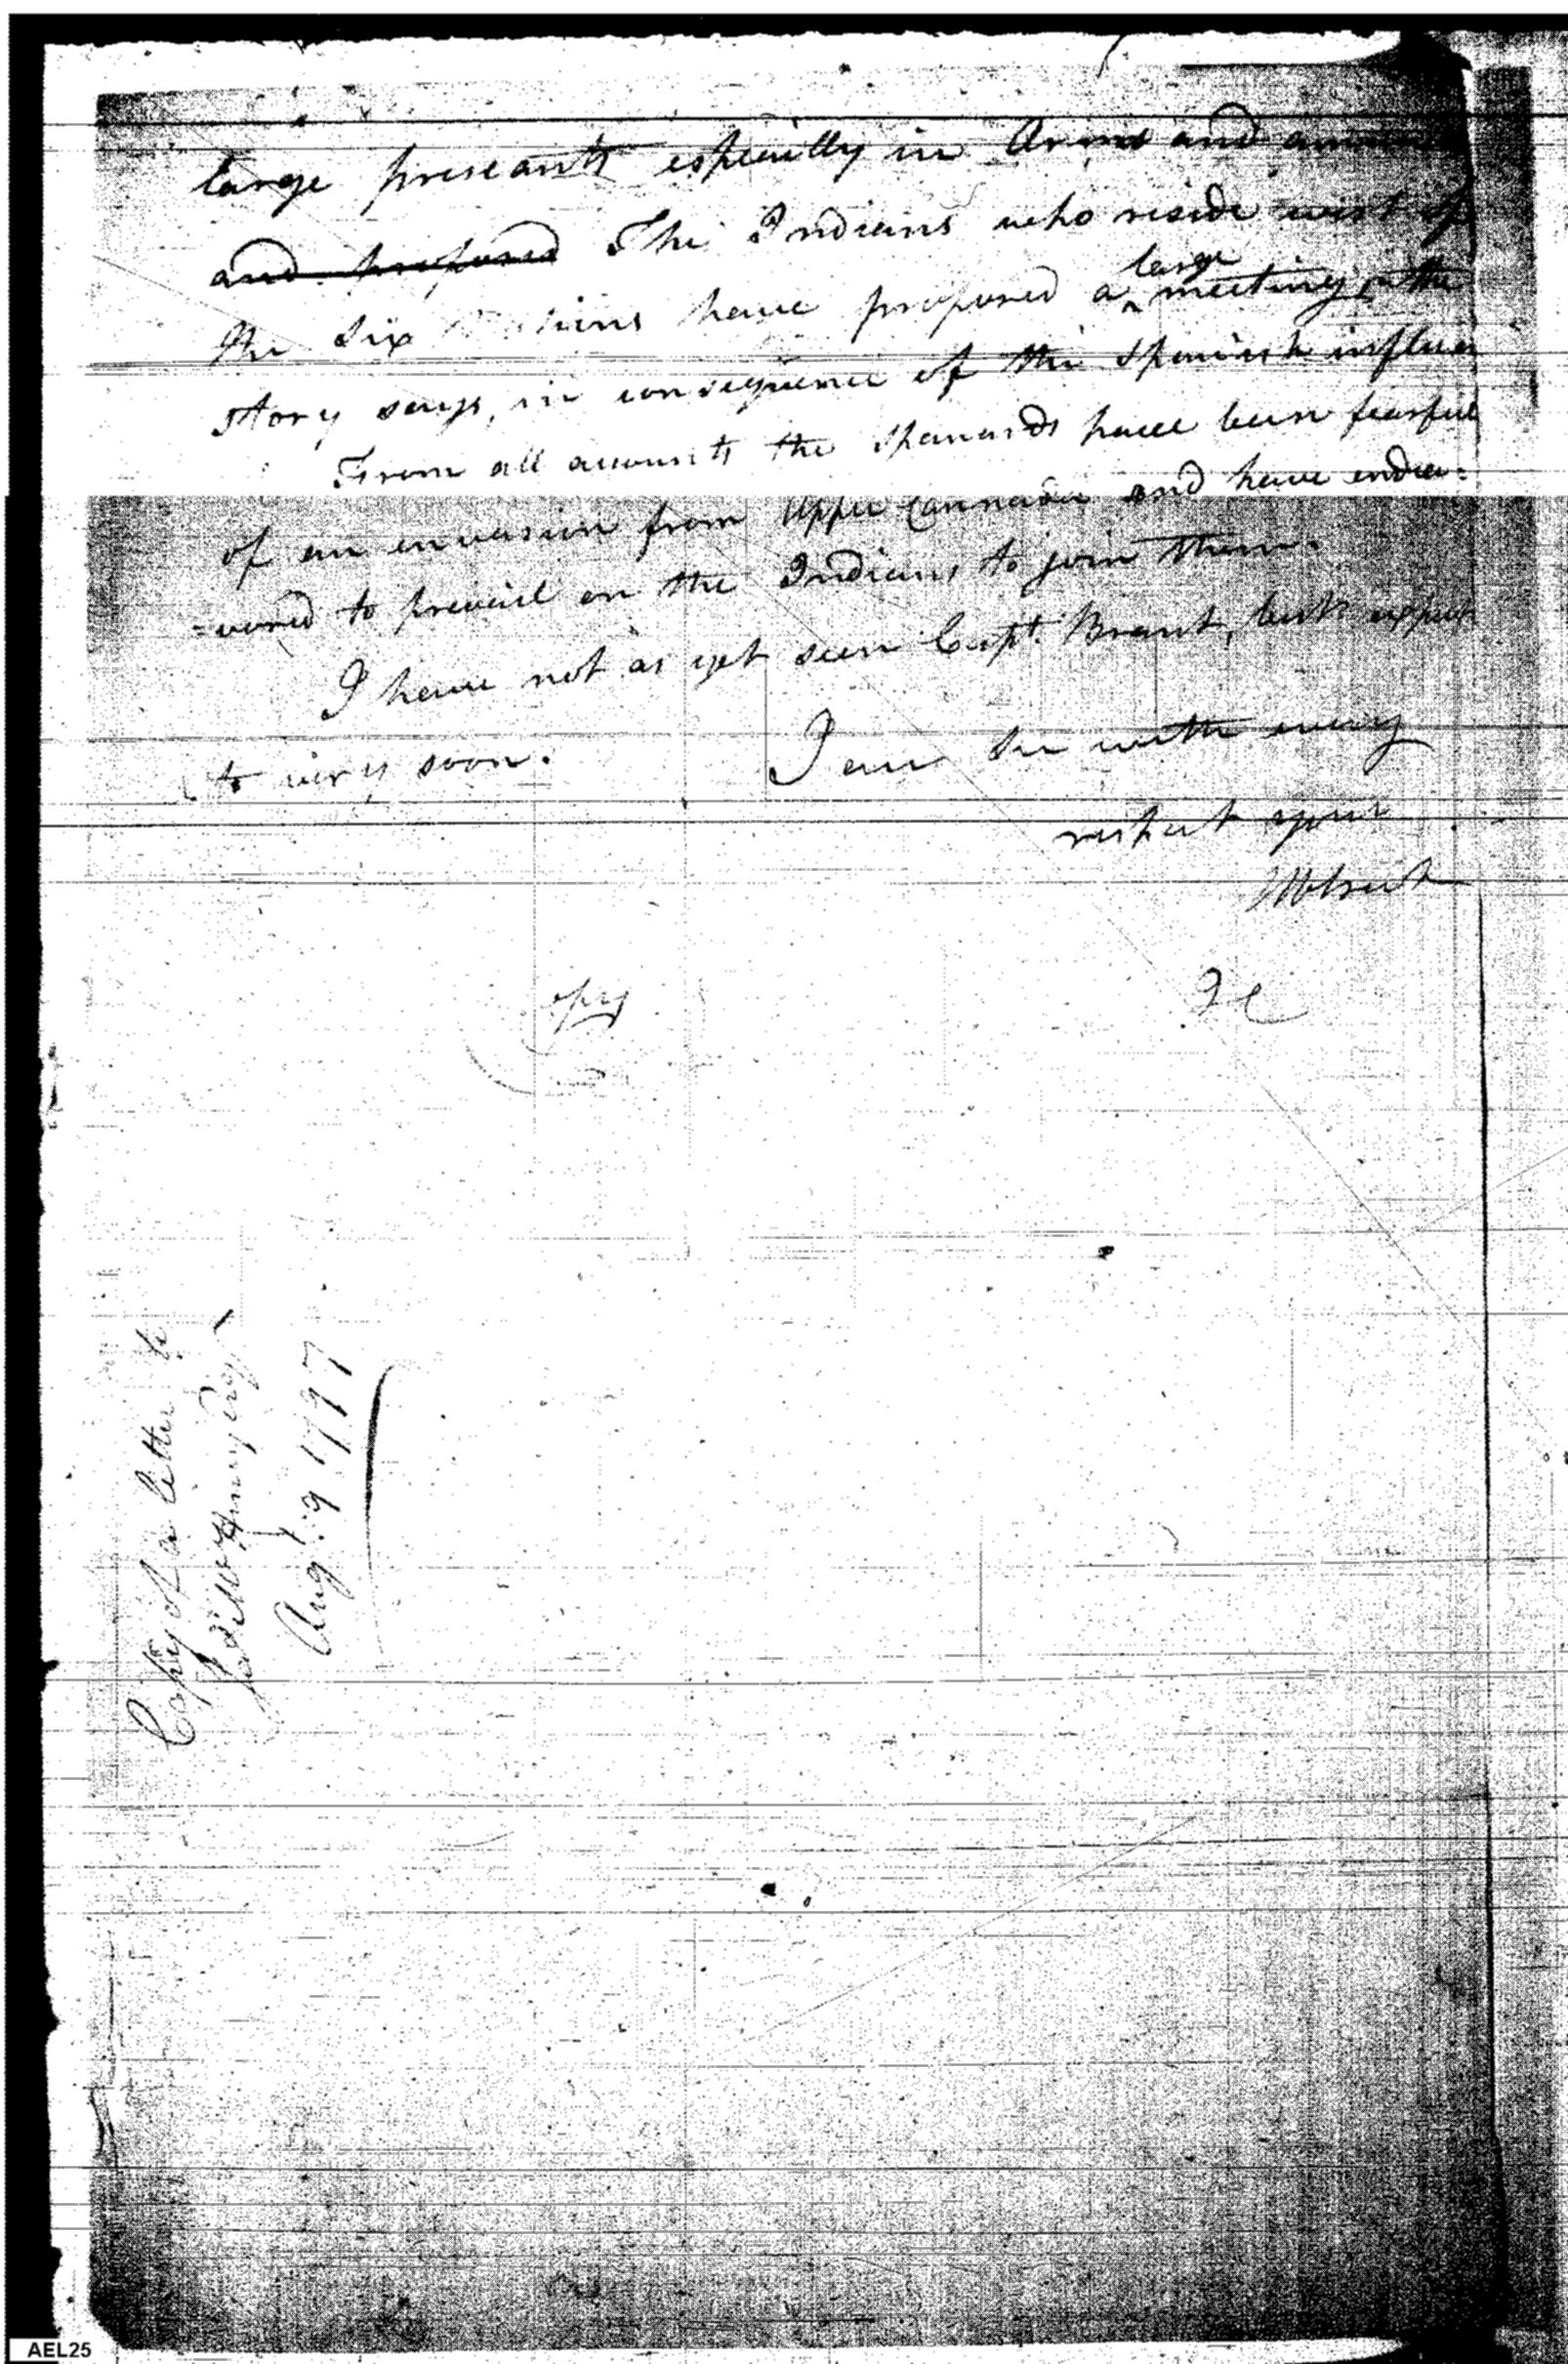 large preseants especially in Arms and
and proposed The Indians who reside west of
the Six have proposed a large meeting, the
story says, in consequence of the Spanish influen
From all accounts the Spanards have been fearful
of an envasion from Upper Cannada and have endea-
=vored to prevail on the Indians to join them.
I have not as yet seen Capt. Brant, but expect
to very soon.
I am Sir with every
respect your
Mobserv
Copy
Copy of a letter to
Augt. 9 1797
AEL25